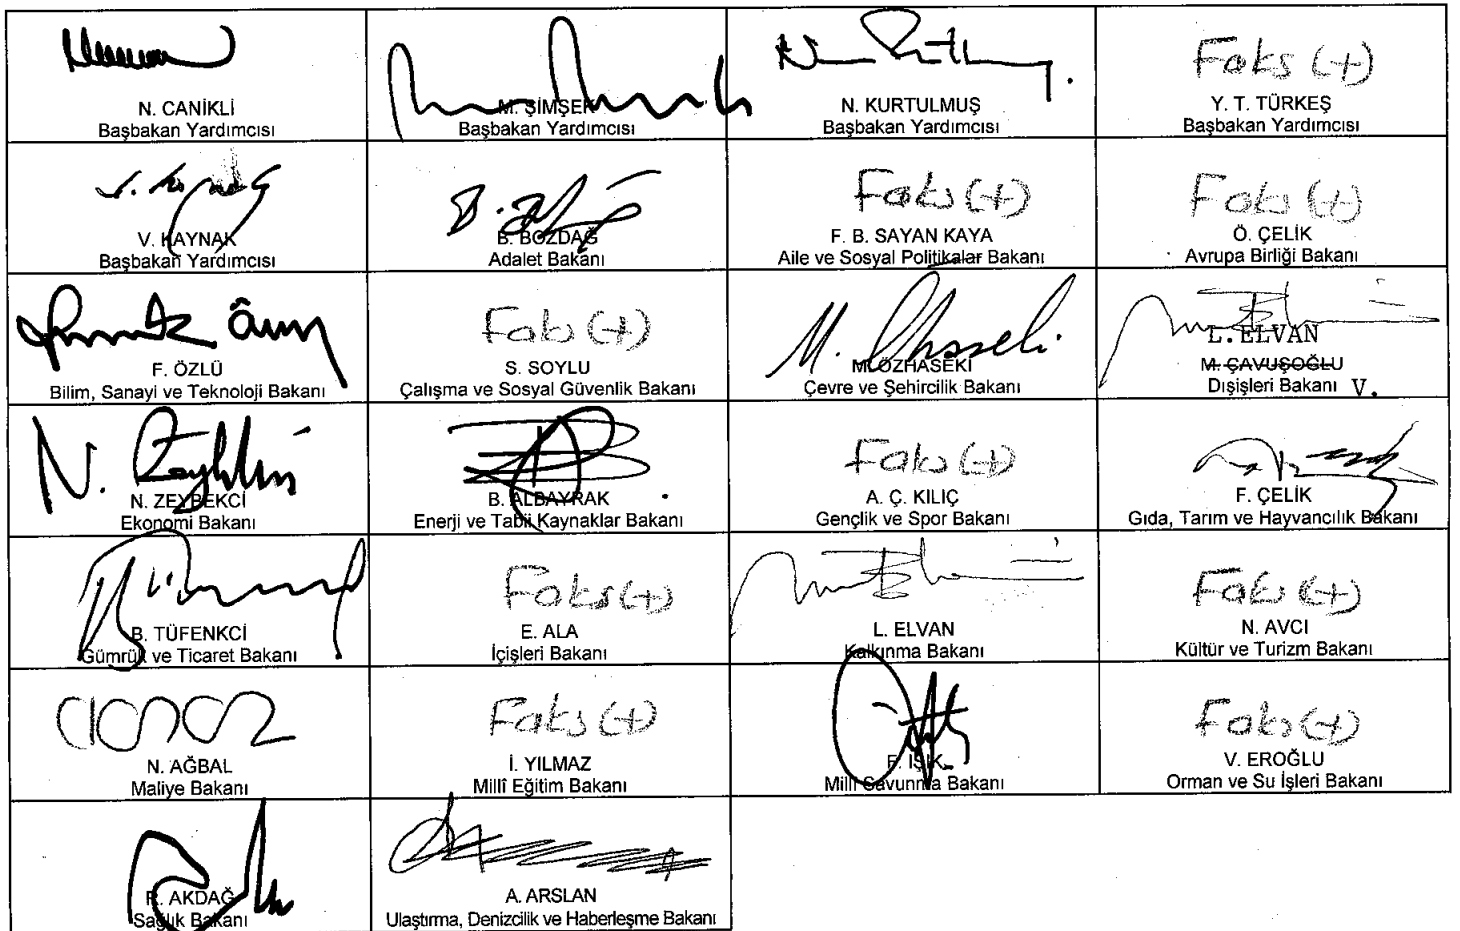 N. CANİKLİ
Başbakan Yardımcısı
M. ŞİMŞEK
Başbakan Yardımcısı
N. KURTULMUŞ
Başbakan Yardımcısı
Faks (+)
Y. T. TÜRKEŞ
Başbakan Yardımcısı
V. KAYNAK
Başbakan Yardımcısı
B. BOZDAĞ
Adalet Bakanı
Faks (+)
F. B. SAYAN KAYA
Aile ve Sosyal Politikalar Bakanı
Faks (+)
Ö. ÇELİK
Avrupa Birliği Bakanı
F. ÖZLÜ
Bilim, Sanayi ve Teknoloji Bakanı
Faks (+)
S. SOYLU
Çalışma ve Sosyal Güvenlik Bakanı
M. ÖZHASEKİ
Çevre ve Şehircilik Bakanı
L. ELVAN
M. ÇAVUŞOĞLU
Dışişleri Bakanı V.
N. ZEYBEKCİ
Ekonomi Bakanı
B. ALBAYRAK
Enerji ve Tabii Kaynaklar Bakanı
Faks (+)
A. Ç. KILIÇ
Gençlik ve Spor Bakanı
F. ÇELİK
Gıda, Tarım ve Hayvancılık Bakanı
B. TÜFENKCİ
Gümrük ve Ticaret Bakanı
Faks (+)
E. ALA
İçişleri Bakanı
L. ELVAN
Kalkınma Bakanı
Faks (+)
N. AVCI
Kültür ve Turizm Bakanı
N. AĞBAL
Maliye Bakanı
Faks (+)
İ. YILMAZ
Millî Eğitim Bakanı
F. IŞIK
Millî Savunma Bakanı
Faks (+)
V. EROĞLU
Orman ve Su İşleri Bakanı
R. AKDAĞ
Sağlık Bakanı
A. ARSLAN
Ulaştırma, Denizcilik ve Haberleşme Bakanı